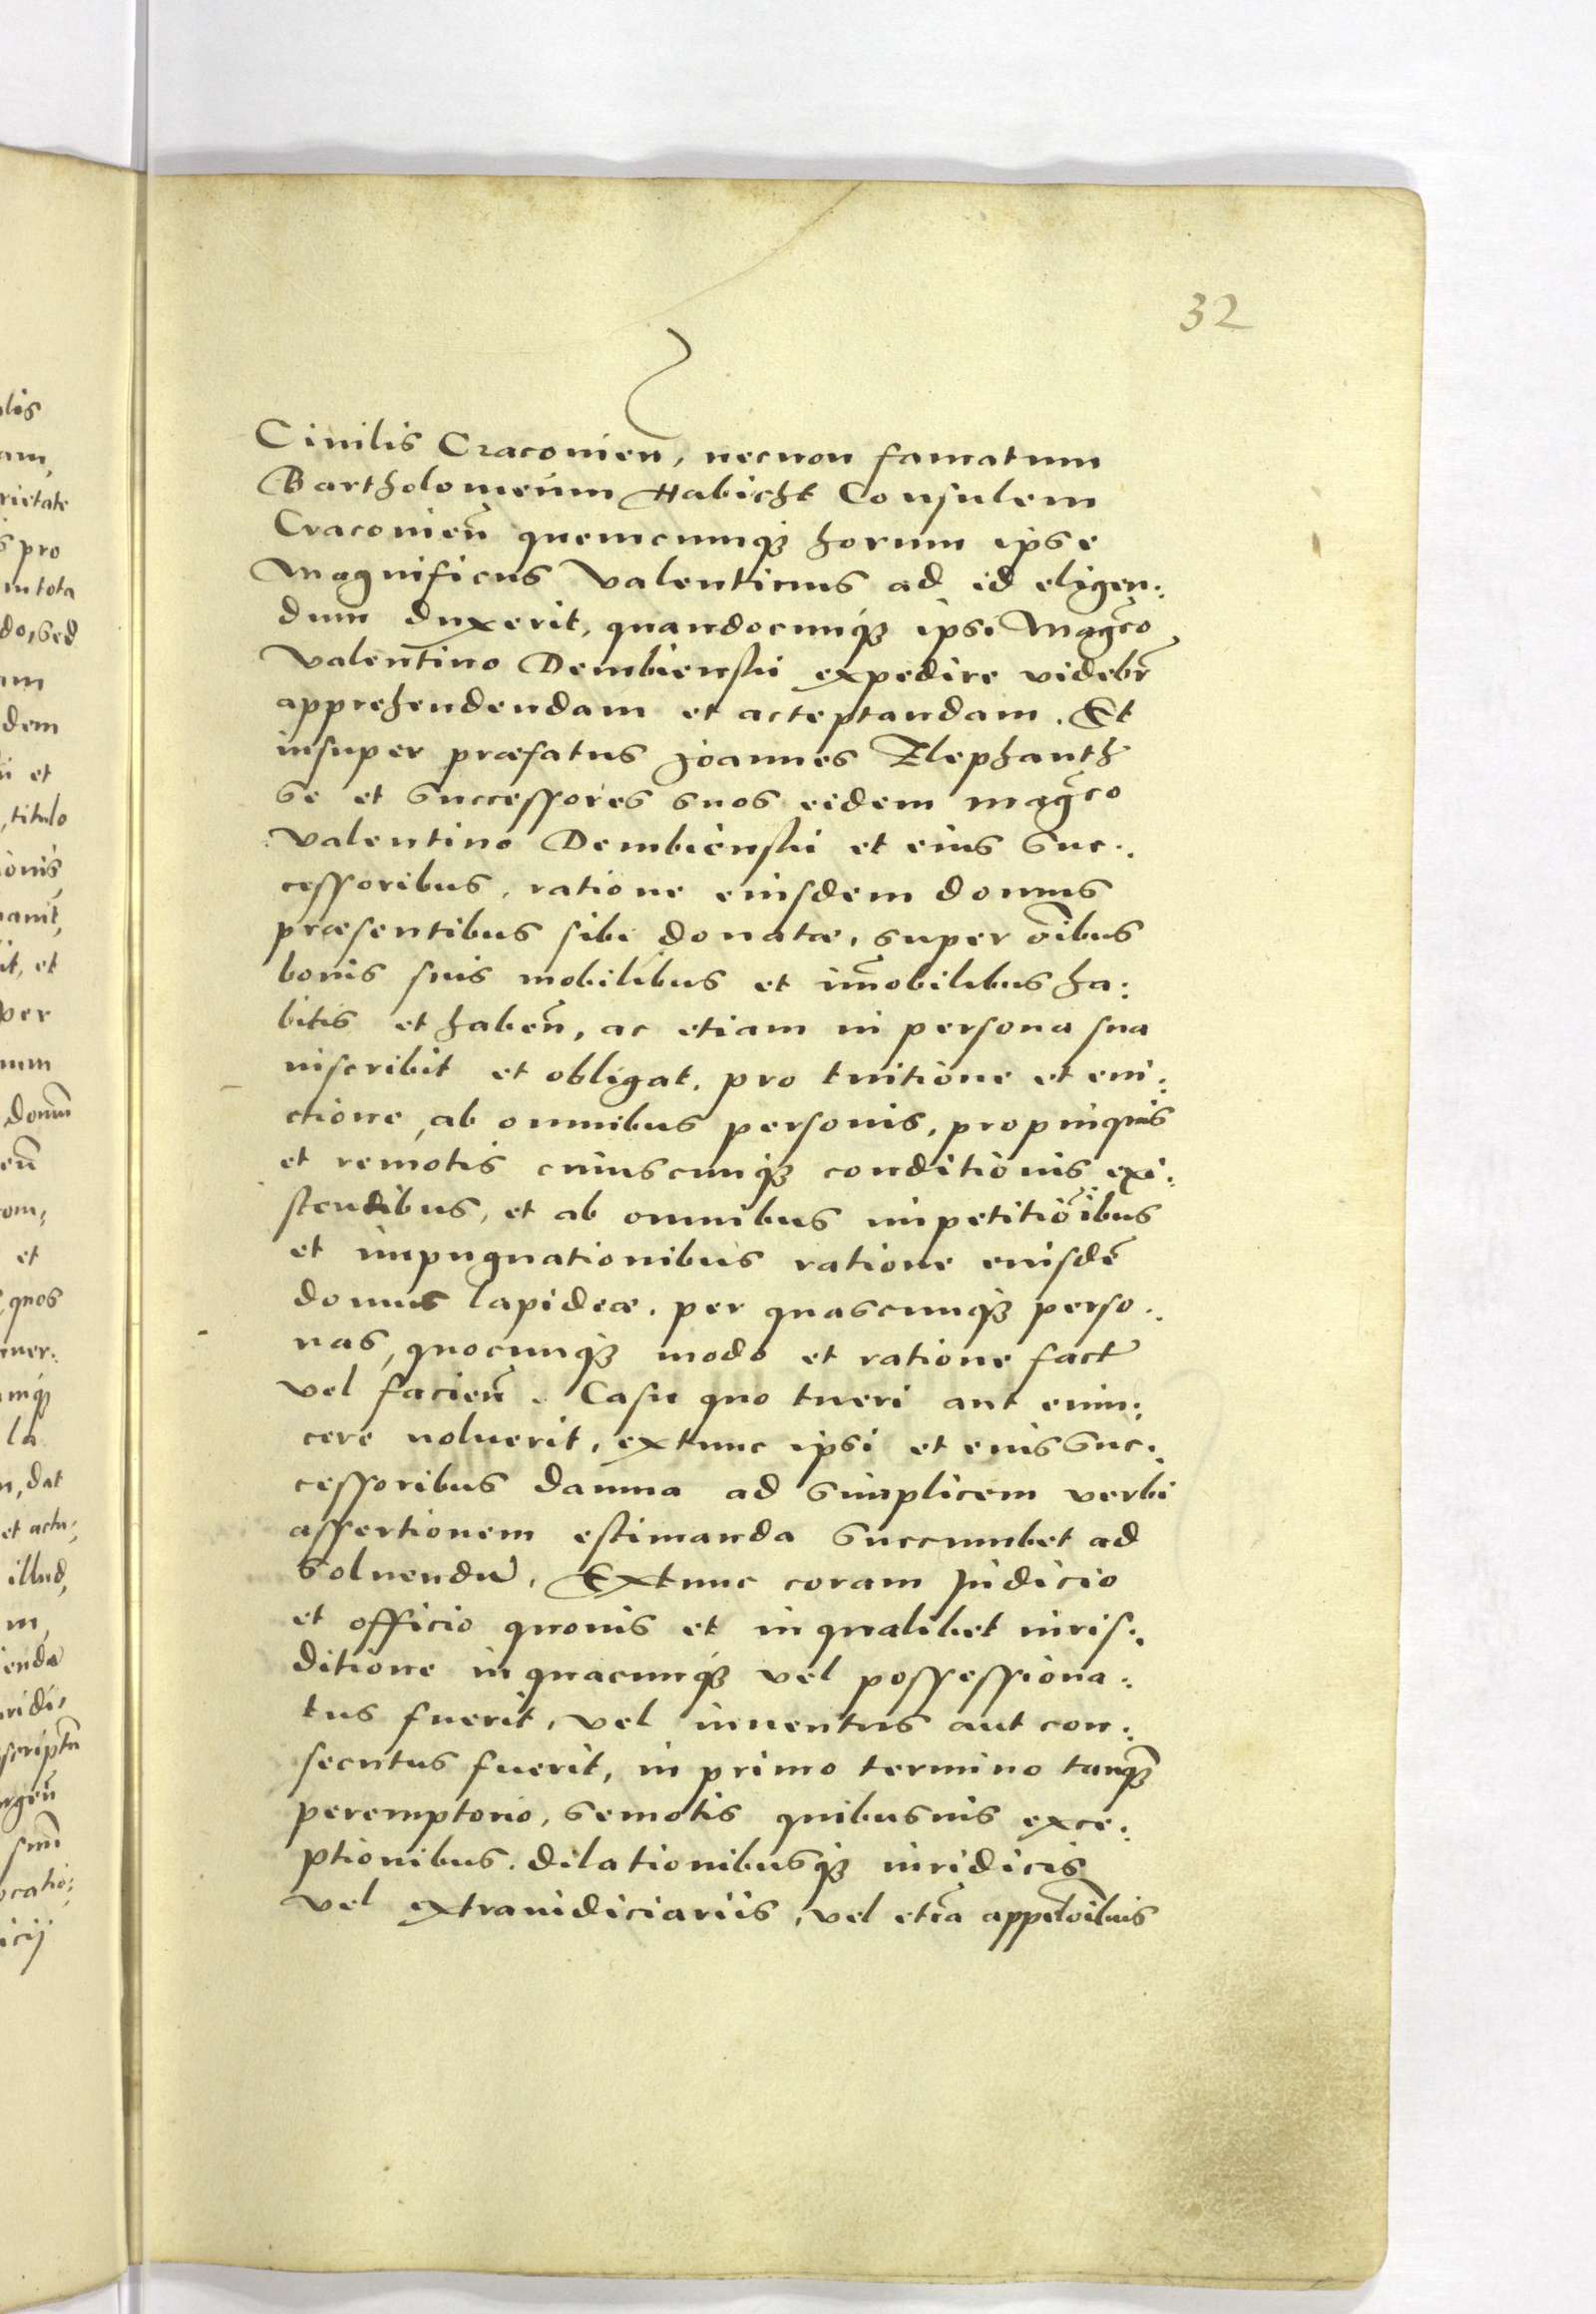 32
Ciuilis Cracouien, necnon famatum
Bartholomeum Habicht Consulem
Cracouien̄ quemcumqꝫ horum ipse
Magnificus Valentinus ad id eligen:
dum duxerit, quandocunqꝫ ipsi Mag̃co
Valentino Dembienskii expedire videbr̄
apprehendendam et acceptandam. Et
insuper præfatus Joannes Elephanth
se et successores suos eidem mag̃co
Valentino Dembienskii et eius suc:
cessoribus, ratione eiusdem domus
præsentibus sibi donatæ, super oĩbus
bonis suis mobilibus et im̄obilibus ha:
bitis et haben̄, ac etiam in persona sua
inscribit et obligat, pro tuitione et eui:
ctione, ab omnibus personis, propinquis
et remotis cuiuscunqꝫ conditionis exi:
stentibus, et ab omnibus impetitiōibus
et impugnationibus ratione eiusdē
domus lapideæ, per quascunqꝫ perso:
nas, quocunqꝫ modo et ratione fact
vel facien̄. Casu quo tueri aut euin:
cere noluerit, extunc ipsi et eius suc:
cessoribus damna ad simplicem verbi
assertionem estimanda succumbet ad
soluendū, Extunc coram Judicio
et officio quouis et in qualibet iuris:
ditione in quacunqꝫ vel possessiona:
tus fuerit, vel inuentus aut con:
secutus fuerit, in primo termino tanqꝫ
peremptorio, semotis quibusuis exce:
ptionibus, dilationibusqꝫ iuridicis
vel extraiudiciariis, vel etiā appellōibus
lis
am,
rietate
s pro
in tota
do, sed
um
dem
ii et
, titulo
ionis
it, et
per
num
domū
eū
com;
et
quos
umqꝫ
la
n, dat
et actu;
illud,
m,
enda
uridi,
scriptū
ocatio:
icij